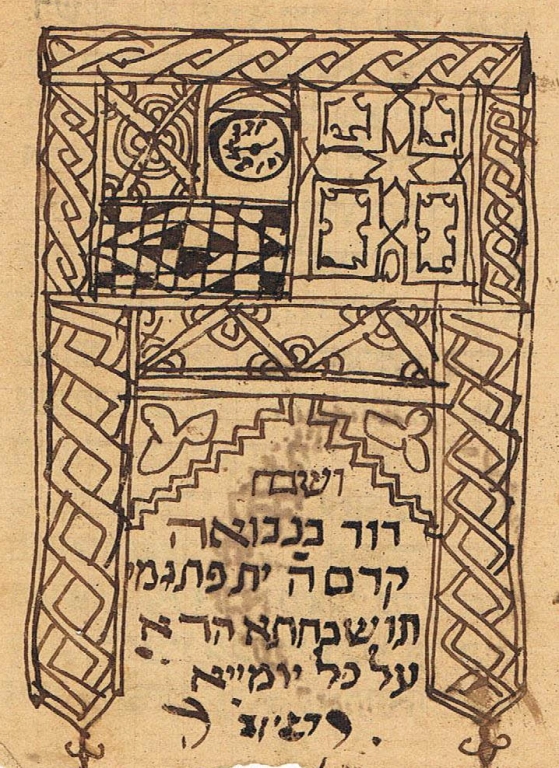 ושבח
דוד בנבואה
קדם ה ית פתגמי
תושבחתא הדא
על כל יומייא